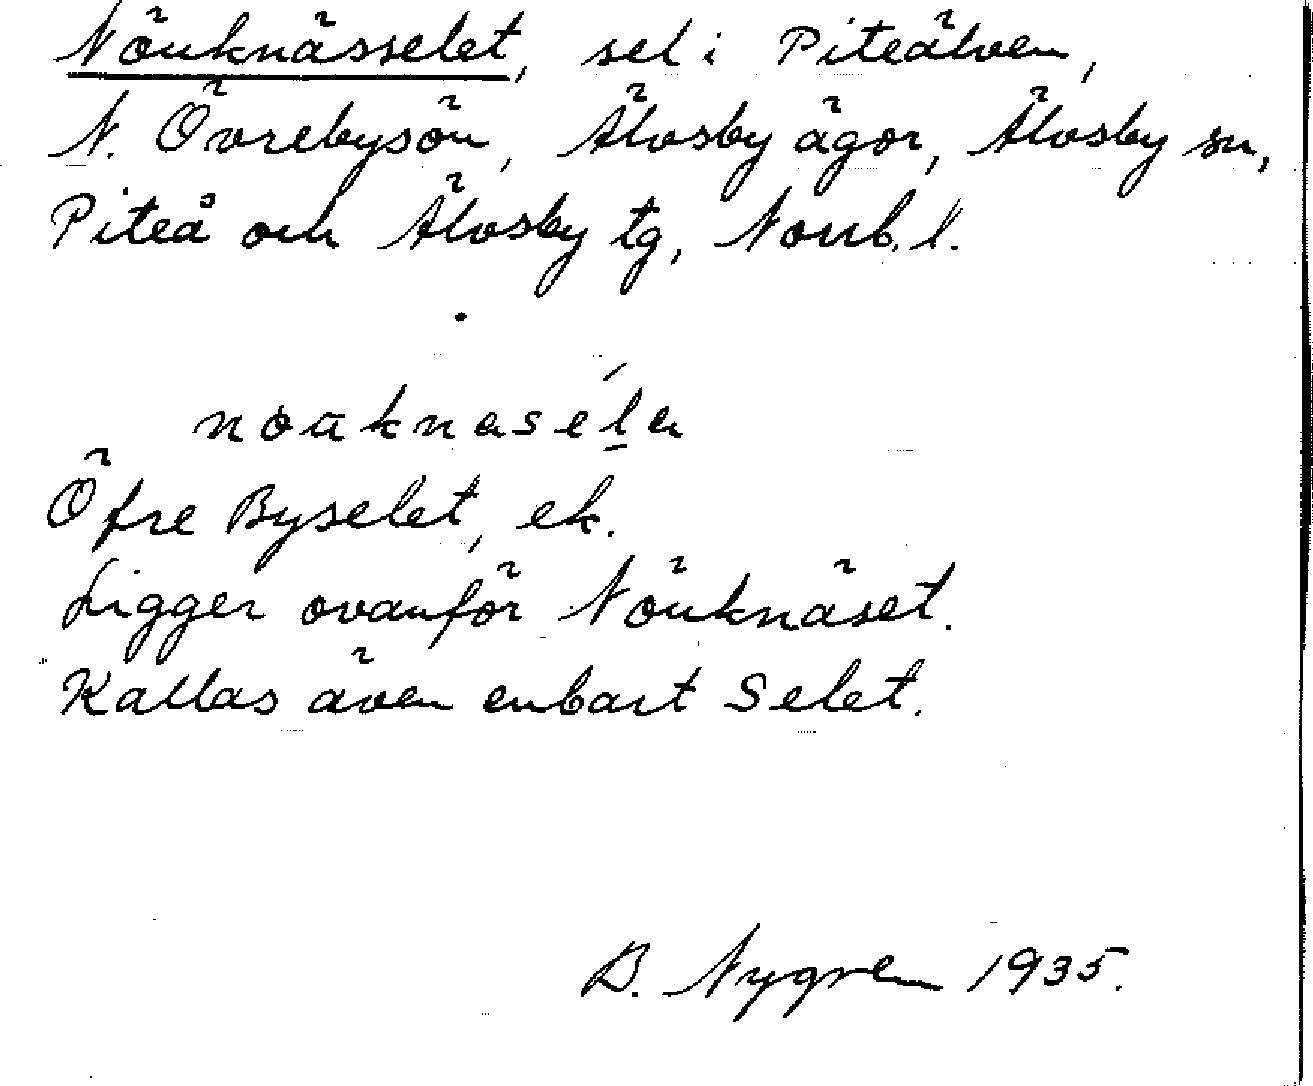 Nöuknässelet, sel i Piteälven,
N. Övrebysön, Älvsby ägor, Älvsby sn,
Piteå och Älvsby tg, Norrb. l.
Öfre Byselet, ek.
Ligger ovanför Nöuknäset.
Kallas även enbart Selet.
B. Nygren 1935.